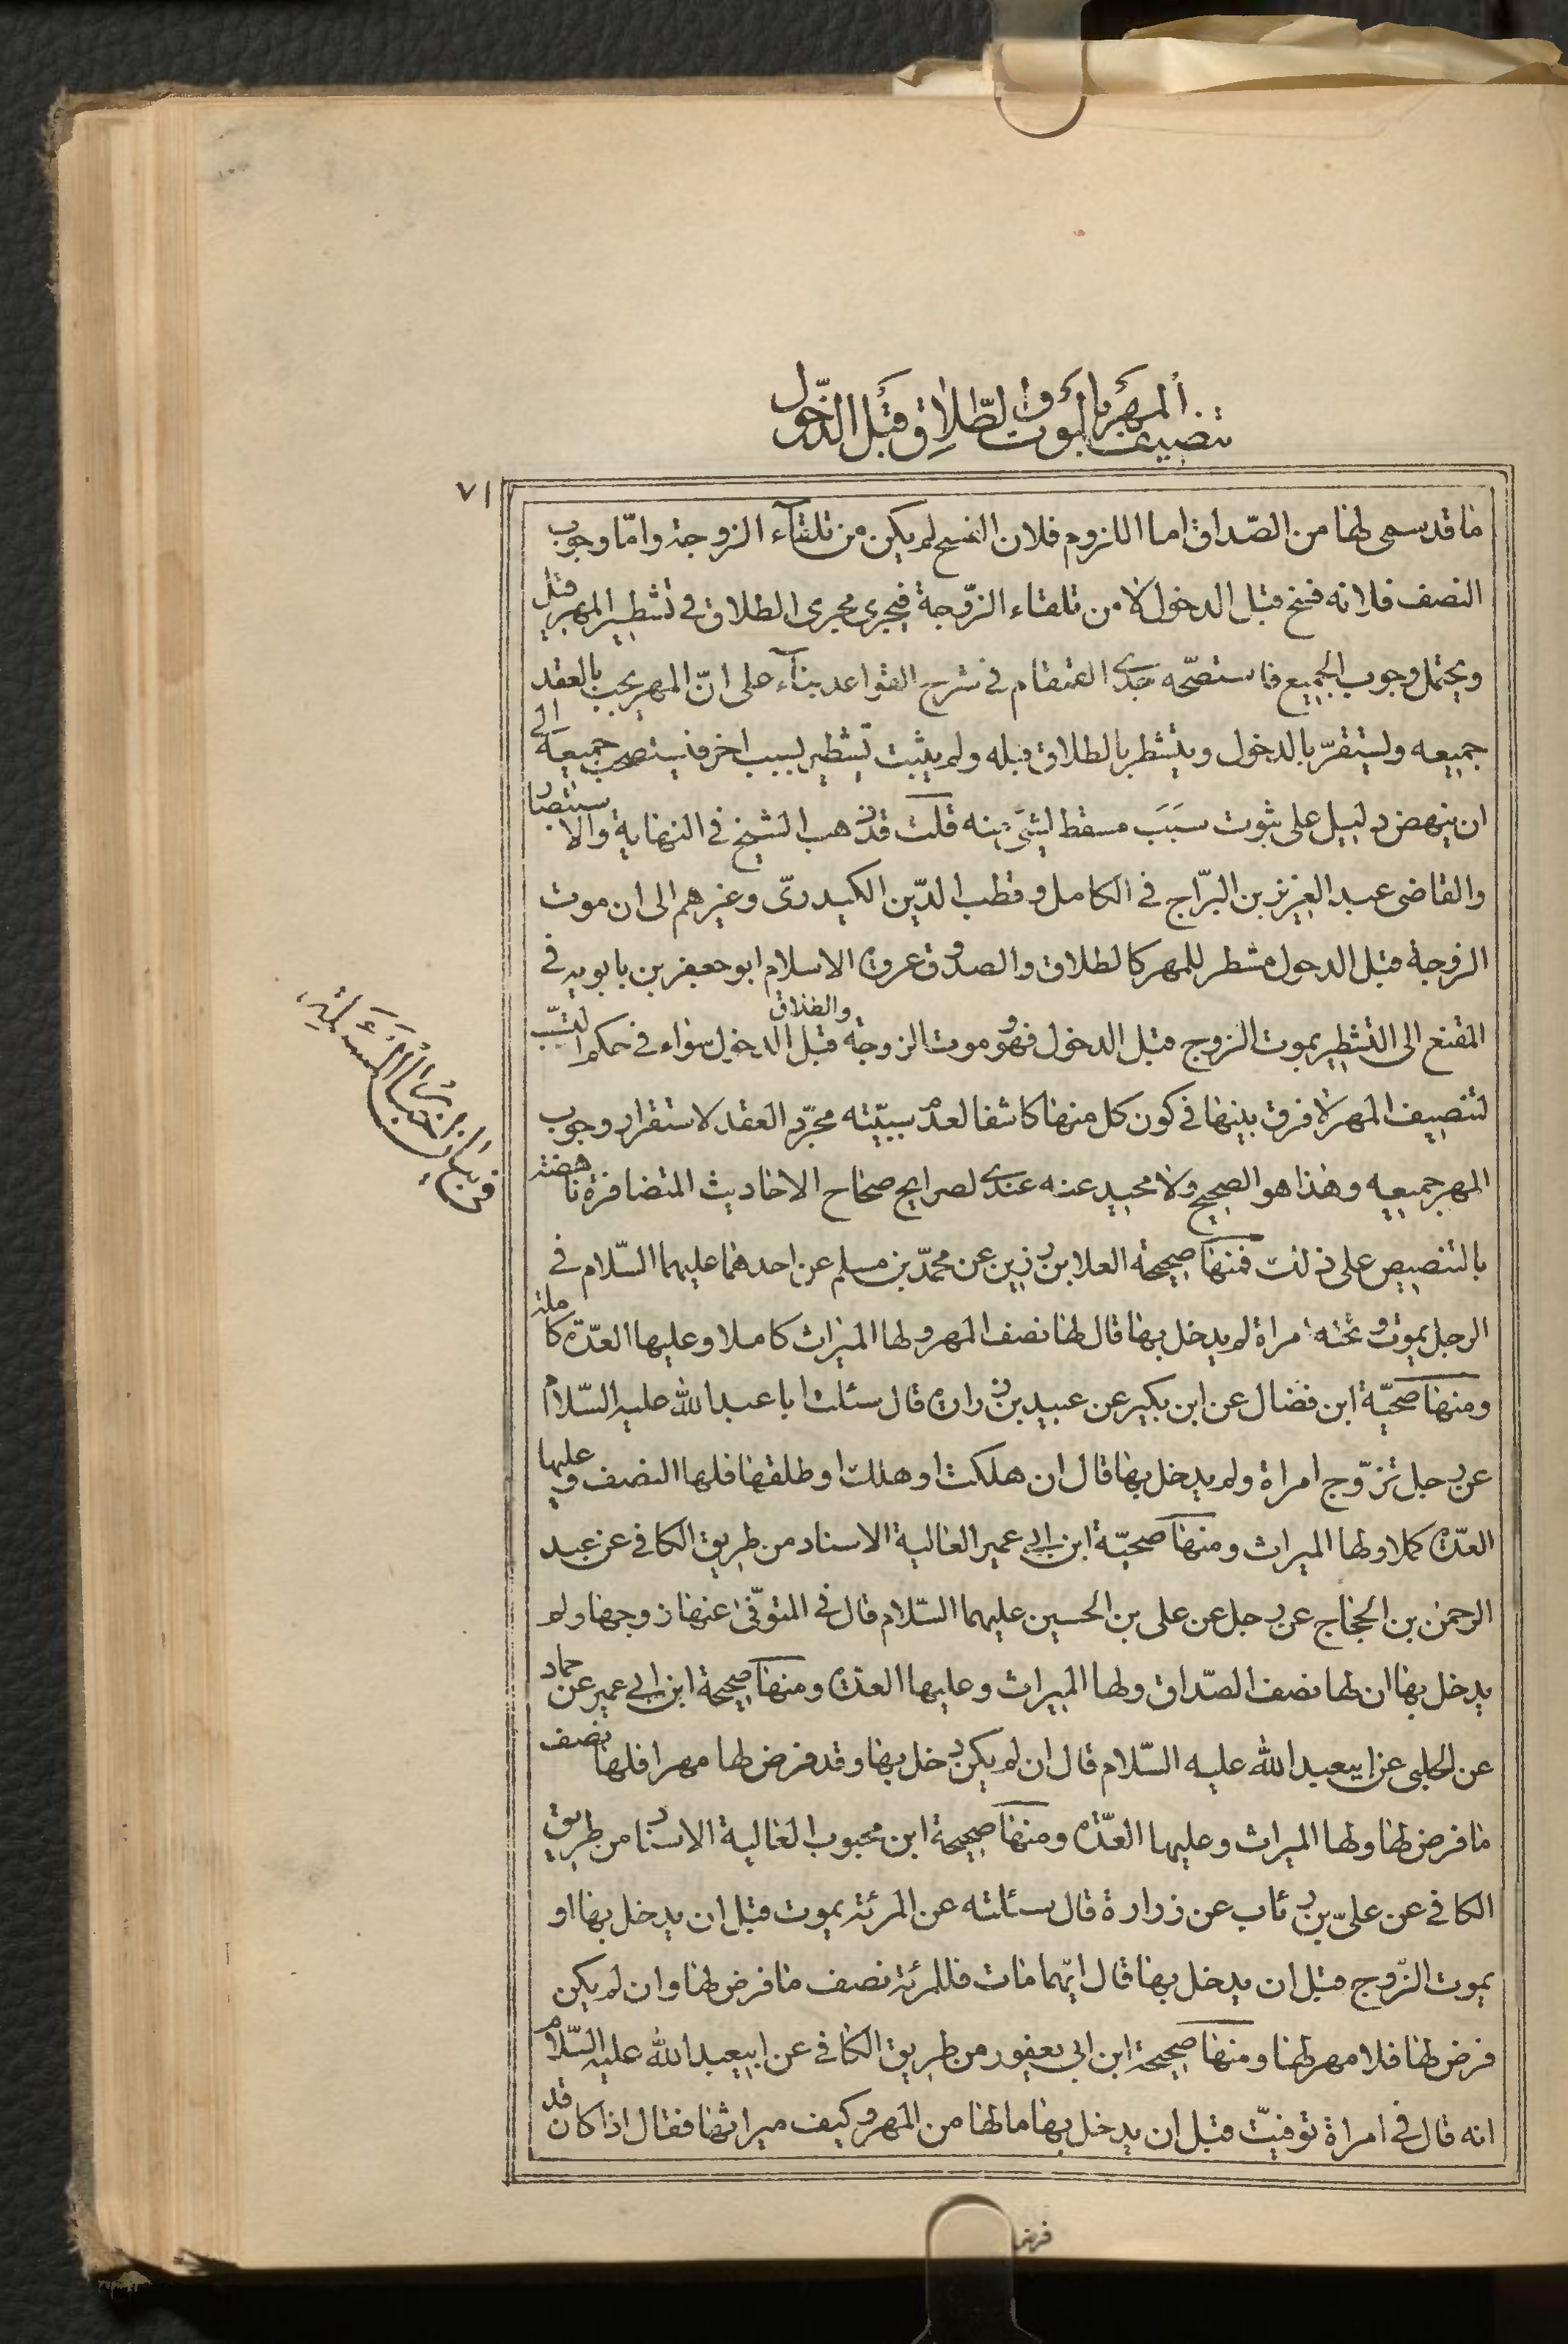 تنصيف المهر بالموت والطلاق قبل الدخول
٧١
ما قد سمى لها من الصّداق اما اللزوم فلان الفسخ لم يكن من تلقآء الزوجة وامّا وجوب
النصف فلانه فسخ قبل الدخول لا من تلقاء الزّوجة فيجرى مجرى الطلاق فى تشطير المهر قيل
ويحتمل وجوب الجميع فاستصحّه جدى القمقام فى شرح القواعد بنآء على انّ المهر يجب بالعقد
جميعه ويستقرّ بالدخول ويتشطر بالطلاق قبله ولم يثبت تشطير لسبب اخر فيستصحب جميعه الى
ان ينهض دليل على ثبوت سَبَب مسقط لشىء منه قلت قد ذهب الشيخ فى النهاية والاستبصار
والقاضى عبد العزيز بن البرّاج فى الكامل وقطب الدّين الكيدرىّ وغيرهم الى ان موت
الزوجة قبل الدخول مشطر للمهر كالطلاق والصدوق عروة الاسلام ابو جعفر بن بابويه فى
المقنع الى التشطير بموت الزوج قبل الدخول فهو وموت الزوجة والطلاق قبل الدخول سواء فى حكم التسبّب
لتنصيف المهر لا فرق بينها فى كون كل منها كاشفا لعدم سببيّته مجرّد العقد لاستقرار وجوب
المهر جميعه وهذا هو الصحيح ولا محيد عنه عندى لصرايح صحاح الاحاديث المتضافرة ناهضة
بالتنصيص على ذلك فمنها صحيحة العلا بن رزين عن محمّد بن مسلم عن احدهما عليهما السّلام فى
الرجل يموت وتحته امراة لم يدخل بها قال لها نصف المهر ولها الميراث كاملا وعليها العدّة كاملة
ومنها صحيّة ابن فضال عن ابن بكير عن عبيد بن زرارة قال سئلت ابا عبد الله عليه السّلام
عن رجل تزوّج امراة ولم يدخل بها قال ان هلكت او هلك او طلقها فلها النصف وعليها
العدّة كملا ولها الميراث ومنها صحيّة ابن ابى عمير العالية الاسناد من طريق الكافى عن عبد
الرحمن بن الحجاج عن رجل عن على بن الحسين عليهما السّلام قال فى المتوفّى عنها زوجها ولم
يدخل بها ان لها نصف الصّداق ولها الميراث وعليها العدّة ومنها صحيحة ابن ابى عمير عن حماد
عن الحلبى عن ابيعبد الله عليه السّلام قال ان لم يكن دخل بها وقد فرض لها مهرا فلها نصف
ما فرض لها ولها الميراث وعليها العدّة ومنها صحيحة ابن محبوب العالية الاسناد من طريق
الكافى عن علىّ بن رئاب عن زرارة قال سئلته عن المرئة يموت قبل ان يدخل بها او
يموت الزّوج قبل ان يدخل بها قال ايّهما مات فللمرئة نصف ما فرض لها وان لم يكن
فرض لها فلا مهر لها ومنها صحيحة ابن ابى يعفور من طريق الكافى عن ابيعبد الله عليه السّلام
انه قال فى امراة توفيّت قبل ان يدخل بها ما لها من المهر وكيف ميراثها فقال اذا كان قد
فرض